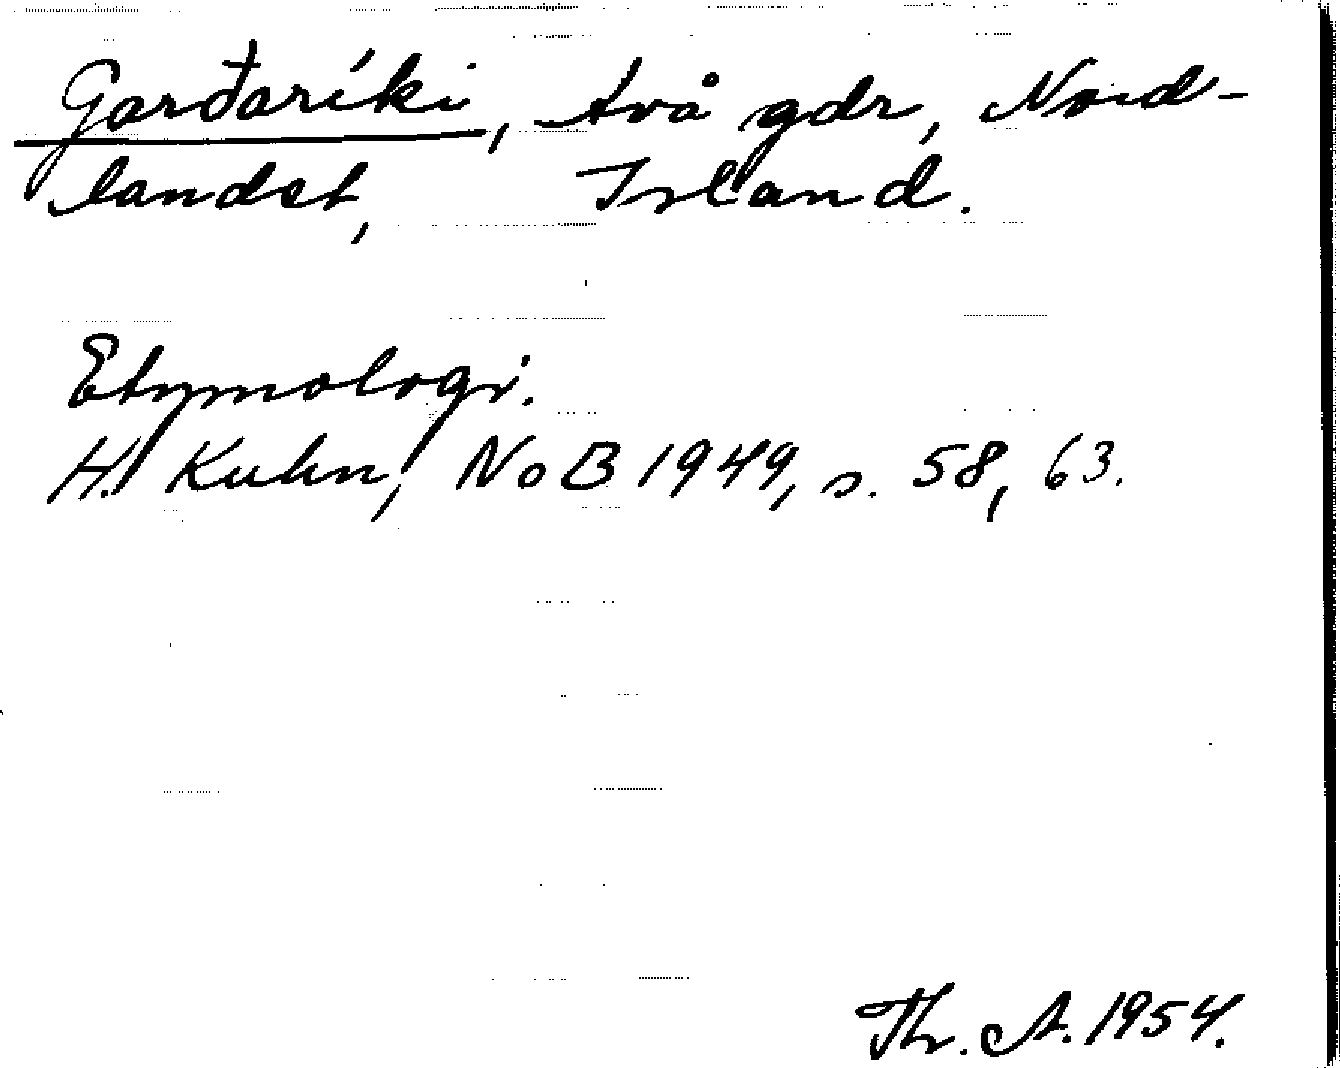 Garðaríki, två gdr, Nord-
landet, Island.
Etymologi.
H. Kuhn, NoB 1949, s. 58, 63.
Th. A. 1954.